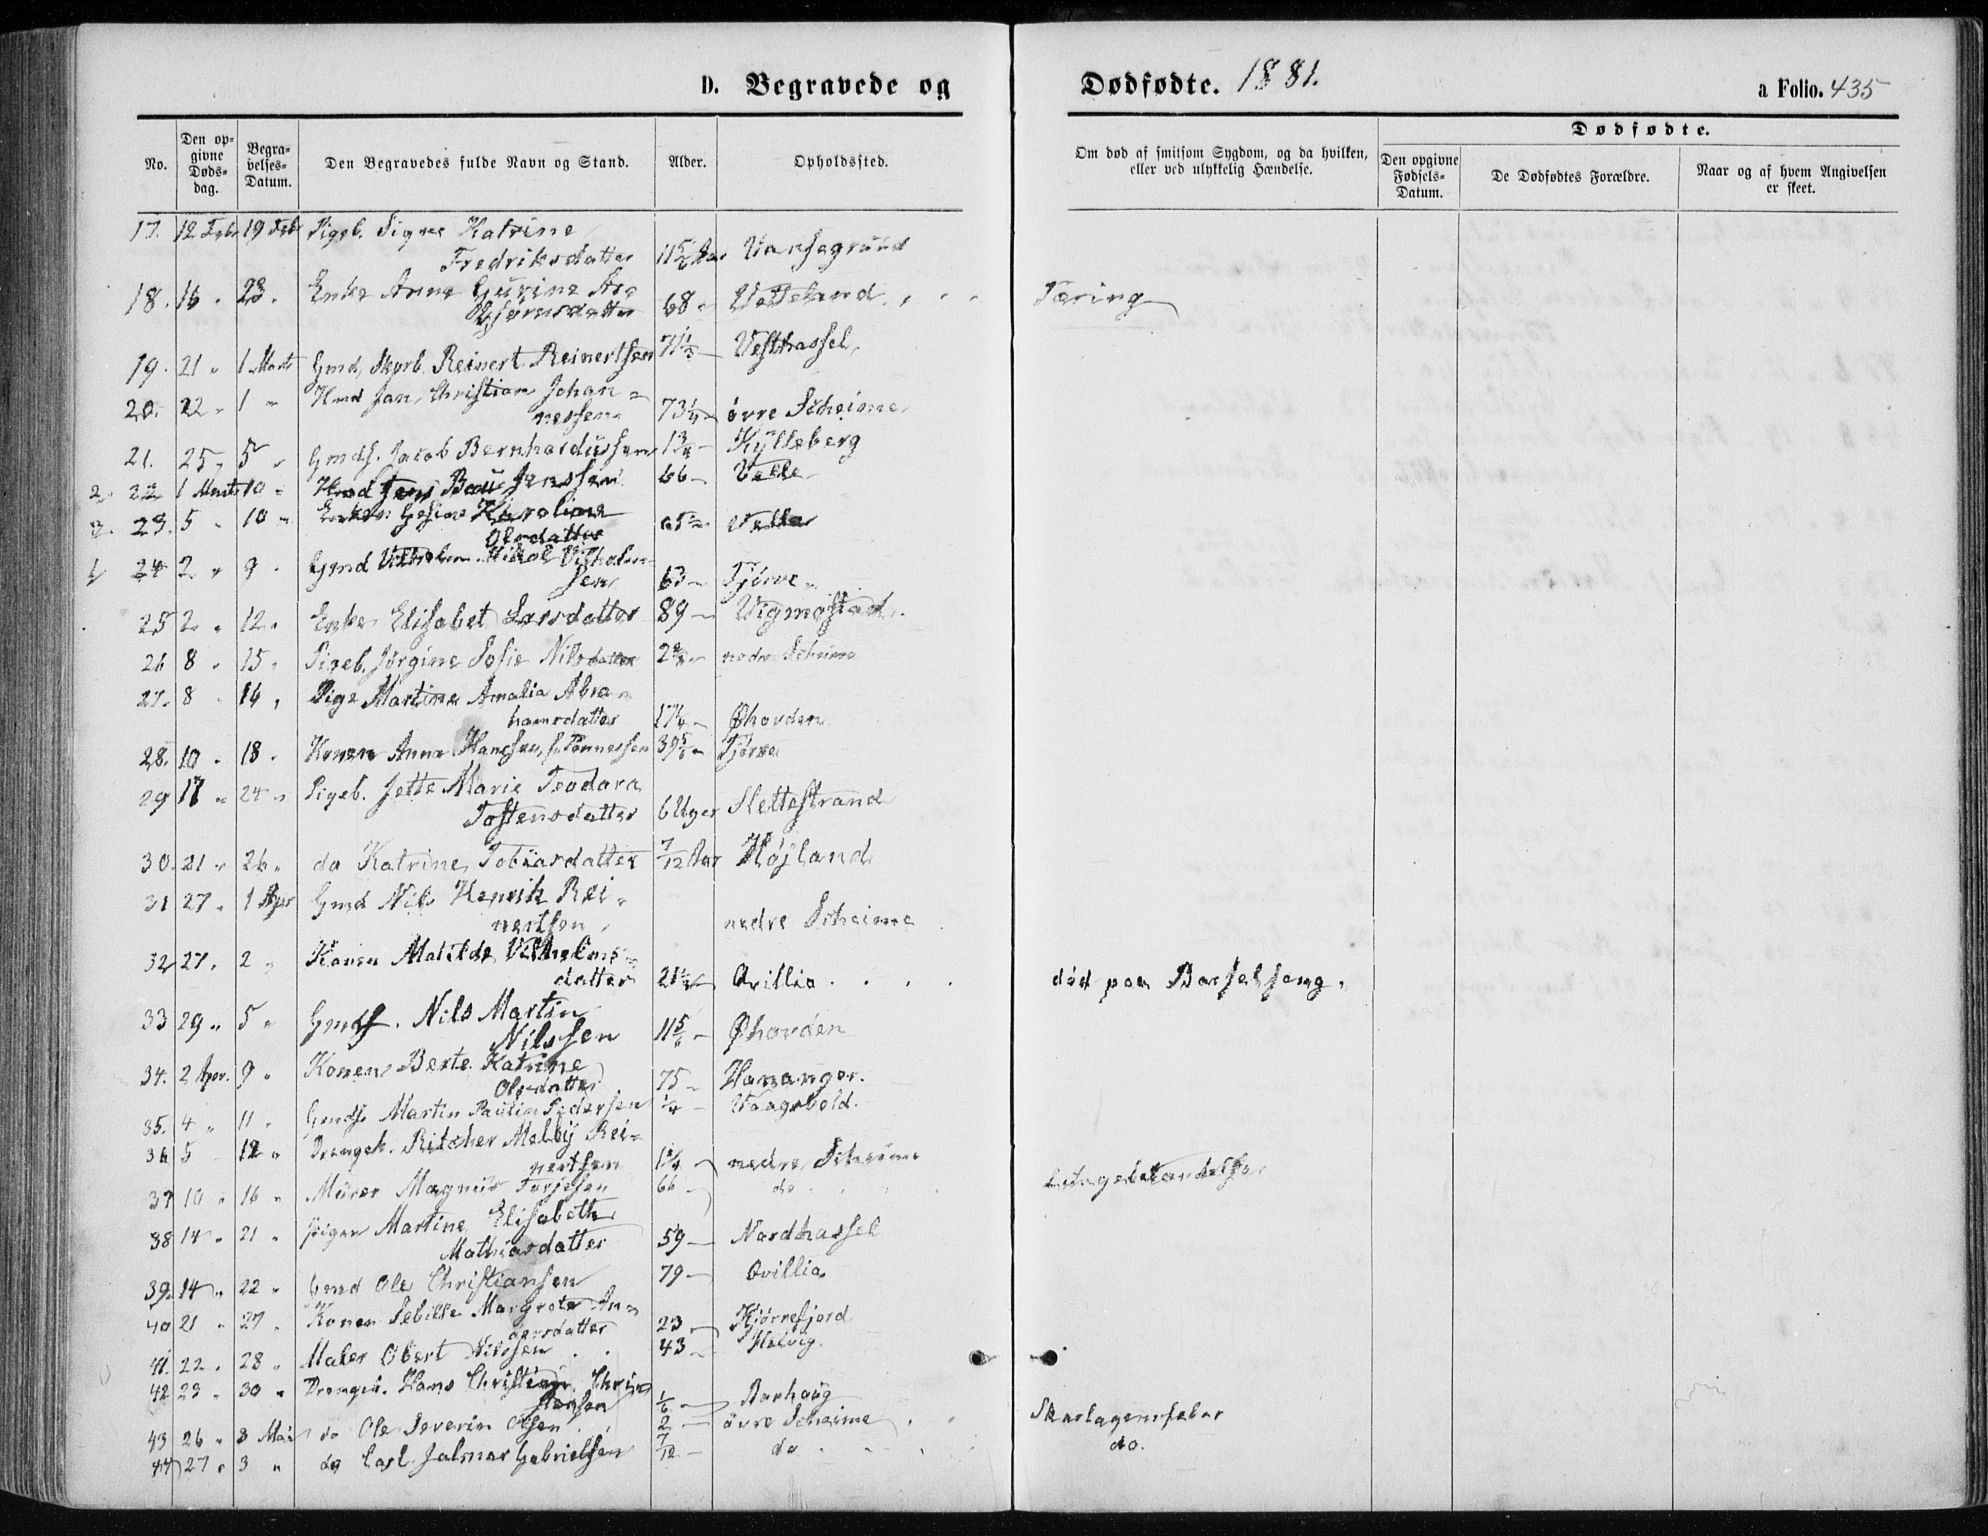 D. Begravede og Dødfødte. 1881.
a Folio. 435
No.
Den opgivne Dødsdag.
Begravelses-Datum.
Den Begravedes fulde Navn og Stand.
Alder.
Opholdssted.
Om død af smitsom Sygdom, og da hvilken, eller ved ulykkelig Hændelse.
Dødfødte.
Den opgivne Fødsels-Datum.
De Dødfødtes Forældre.
Naar og af hvem Angivelsen er skeet.
17. 12 Feb 19 Feb Pigeb. Signe Katrine
Fredriksdatter 11 5/6 Aar Vansegrund
18. 16 " 23 " Enke Anne Gurine As-
bjørnsdatter 68 " Vetteland . . . Tæring
19. 21 " 1 Marts Gmd, Skprb. Reinert Reinertsen 71 1/2 Vesthassel
20. 22 " 1 " Hmd Jan Christian Johan-
nessen 73 1/4 øvre Skeime
21. 25 " 5 " Gmds. Jacob Bernhardussen 1 3/4 Kylleberg
2. 22 1 Marts 10 " Hmd Jens Bau Jenssen 66 Velle
3. 23. 5 " 10 " Enken Gesine Karoline
Olsdatter Velle
1 24 2 " 9 " Gmd Vilhelm Mikal Vilhelm-
sen 63 Tjørve
25 2 " 12 " Enke Elisabet Larsdatter 89 Vigmostad
26 8 " 15 " Pigeb. Jørgine Sofie Nilsdatter nedre Skeime
27. 8 " 14 " Pige Martine Amalia Abra-
hamsdatter Øhovden
28. 10 " 18 " Konen Anna Hansen, f. Tønnessen 39 5/6 Tjørve
29 17 " 24 " Pigeb. Jette Marie Teodora
Tostensdatter 6 Uger Slettestrand
30. 21 " 26 " do Katrine Tobiasdatter 7/12 Aar Højland
31 27 " 1 Apr Gmd Nils Henrik Rei-
nertsen nedre Skeime
32 27. 2 " Konen Matilde Vilhelms-
datter 21 1/2 Qvillia . . . . død paa Barselseng.
33 29 " 5 " Gmds. Nils Martin
Nilssen 11 5/6 Øhovden
34. 2 Apr. 9 " Konen Berte Katrine
Olsdatter 75 Hananger.
35. 4 " 11 " Gmds. Martin Paulin Pedersen 1/4 Vaagsvold.
36 5 12 " Drengeb. Ritcher Melby Rei-
nertsen nedre Skeime
37 10 " 16 " Murer Magnus Tarjesen 66 do
38 14 " 21 " Pigen Martine Elisabeth
Mathiasdatter 59 Nordhassel
39. 14 " 22 " Gmd Ole Christiansen 79 Qvillia
40 21 " 27 " Konen Sebille Margrete An-
dersdatter 23 Kjørrefjord
41. 22 " 28 " Maler Obert Nilssen 43 Helvig.
42 23 " 30 " Drengeb. Hans Christian Chris-
tensen 1/6 Aanhaug
43 26 " 3 Mai do Ole Severin Olsen 2 øvre Skeime . . Skarlagensfeber
44 27 " 3 " do Carl Jalmar Gabrielsen 7/12 do . . . do.